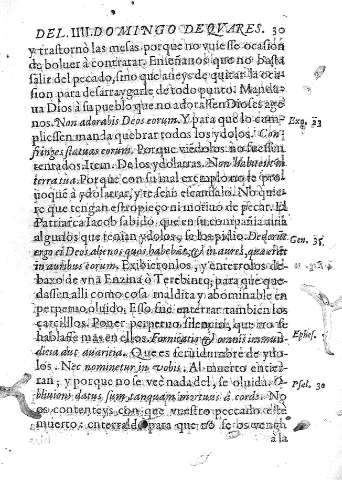 DEL IIII. DOMINGO DE QVARES. 30
y trastornò las mesas porque no vuiesse ocasion
de boluer à contratar. Enseñanos que no basta
salir del pecado, sino que aueys de quitar la oca
sion para desarraygarle de todo punto. Manda-
ua Dios à su pueblo que no adorassen Dioses age
nos. Non adorabis Deos eorum. Y para que lo cum
pliessen manda quebrar todos los ydolos. Con- Exo. 23
fringes statuas eorum. Porque viédolos no fuessen
tentados. Item. De los ydolatras. Non habitent in
terra tua. Porque con su mal exemplo no te pro
uoqué à ydolatrar, y te seã escandalo. No quie-
re que tengan estropieço ni motiuo de pecar. El
Patriarca Iacob sabido, que en su compañia auia
algunos que tenian ydolos, se los pidio. Dederũt Gen. 35.
ergo ei Deos alienos quos habebãt, & in aures, quæ erãt
in auribus eorum. Exibieronlos, y enterrolos de-
baxo de vna Enzina ò Terebinto, para que que-
dassen alli como cosa maldita y abominable en
perpetuo oluido. Esso fue enterrar tambien los
çarcillos. Poner perpetuo silencio, que no se
hablasse mas en ellos. Fornicatio & omnis immun Ephes.
dicia aut auaricia. Que es seruidumbre de ydo-
los. Nec nominetur in vobis. Al muerto entie-
rran, y porque no se vee nada del, se oluida. O- Psal. 30
bliuioni datus sum tanquam mortuus à corde. No
os contenteys con que vuestro peccado estè
muerto: enterraldo para que no se os venga
à la